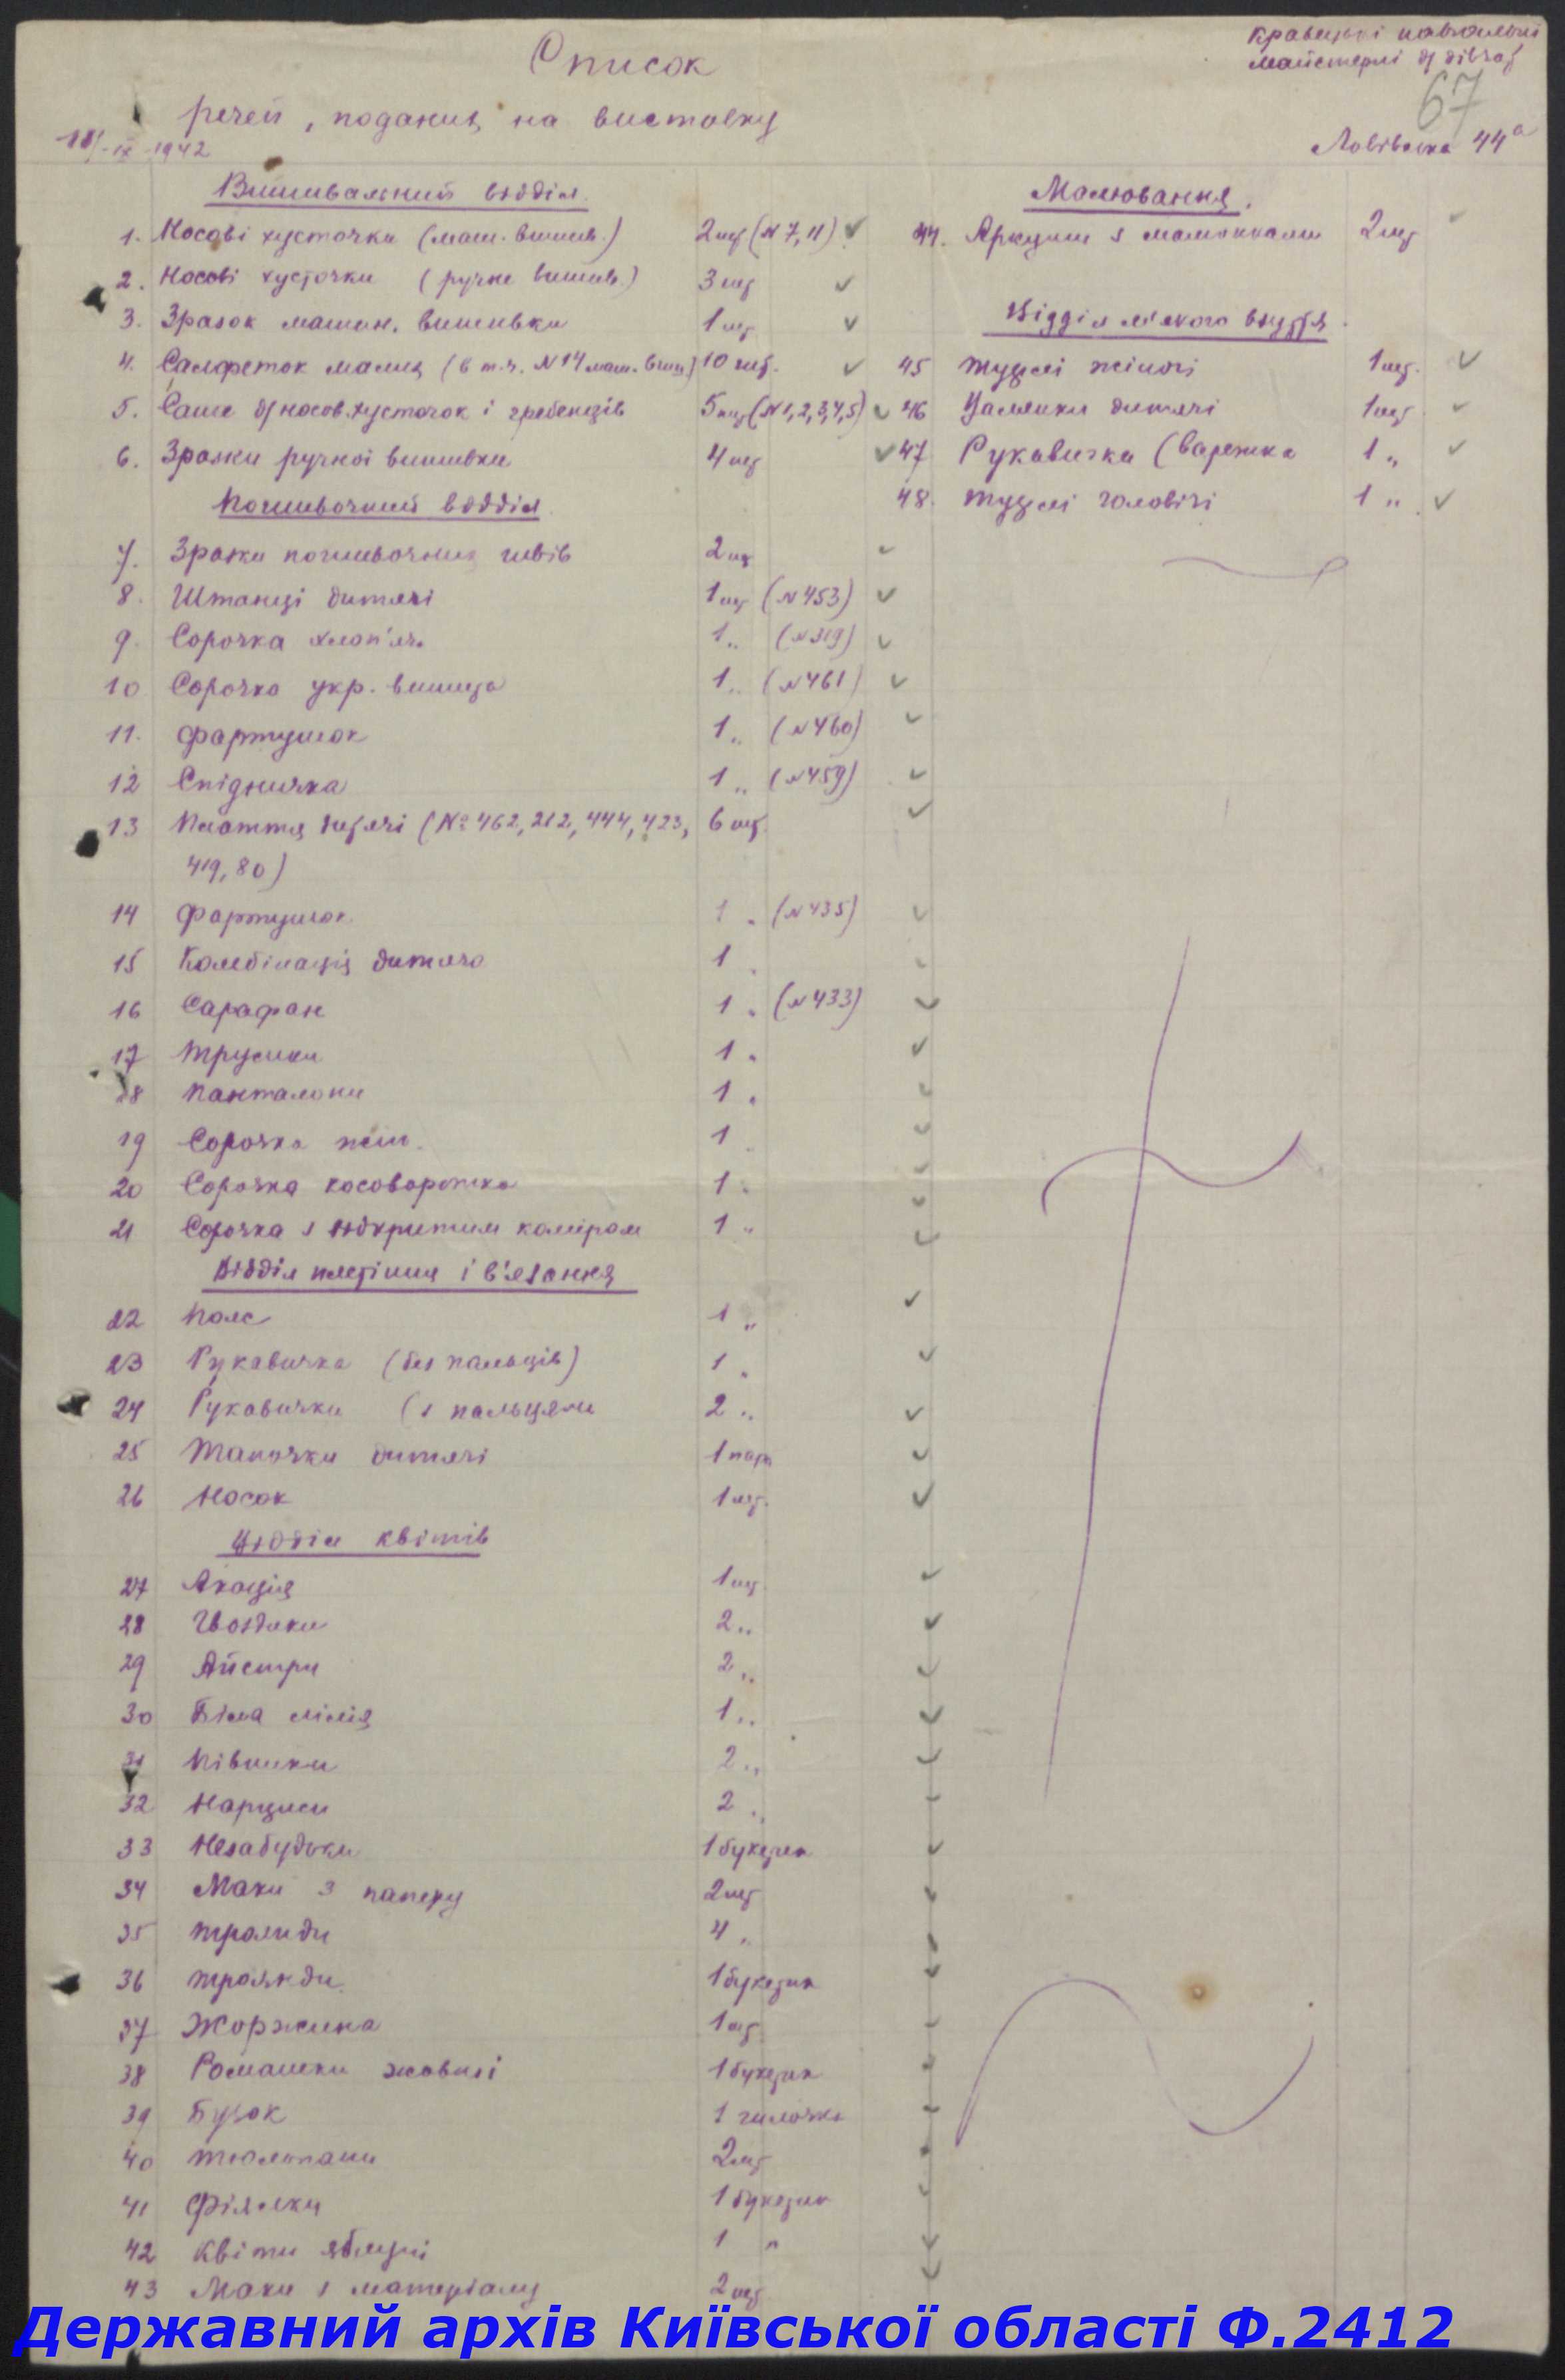 Список
Кравецькі навчальні
майстерні дл дівчат
67
речей, поданих на виставку
11/IX 1942
Львівська 44а
Вишивальний відділ.
1. Носові хусточки (маш. вишив.) 2 шт (№ 7, 11)
2. Носові хусточки (ручне вишив.) 3 шт
3. Зразок машин. вишивки 1 шт
4. Салфеток малих (в т.ч. №14 маш. виш.) 10 шт.
5. Саше дл носов. хусточок і гребенців 5 шт (№ 1, 2, 3, 4, 5)
6. Зразки ручної вишивки 4 шт
Пошивочний відділ.
7. Зразки пошивочних швів 2 шт
8. Штанці дитячі 1 шт (№453)
9. Сорочка хлоп'яч. 1 „ (№319)
10 Сорочка укр. вишита 1 „ (№461)
11. Фартушок 1 „ (№460)
12 Спідничка 1 „ (№459)
13 Плаття дитячі (№ 462, 212, 444, 423, 6 шт.
419, 80)
14 Фартушок 1 „ (№435)
15 Комбінація дитяча 1
16 Сарафан 1 „ (№433)
17 Трусики 1 „
18 Панталони 1 „
19 Сорочка жін. 1 „
20 Сорочка косоворотка 1 „
21 Сорочка з відкритим коміром 1 „
Відділ плетіння і в'язання
22 Пояс 1 „
23 Рукавичка (без пальців) 1 „
24 Рукавички (з пальцями 2 „
25 Тапочки дитячі 1 пара
26 Носок 1 шт.
Відділ квітів
27 Акація 1 шт
28 Гвоздики 2 „
29 Айстри 2 „
30 Біла лілія 1 „
31 Півники 2 „
32 Нарциси 2 „
33 Незабудьки 1 букетик
34 Маки з паперу 2 шт
35 Троянди 4 „
36 Троянди 1 букетик
37 Жоржина 1 шт
38 Ромашки жовті 1 букетик
39 Бузок 1 гилочка
40 Тюльпани 2 шт
41 Фіялки 1 букетик
42 Квіти яблуні 1 „
43 Маки з матеріалу 2 шт
Малювання.
44. Аркуші з малюнками 2 шт
Відділ м'якого взуття.
45 Туфлі жіночі 1 шт.
46 дитячі 1 шт
47 Рукавичка (варежка 1 „
48. Туфлі чоловічі 1 „
Державний архів Київської області Ф.2412